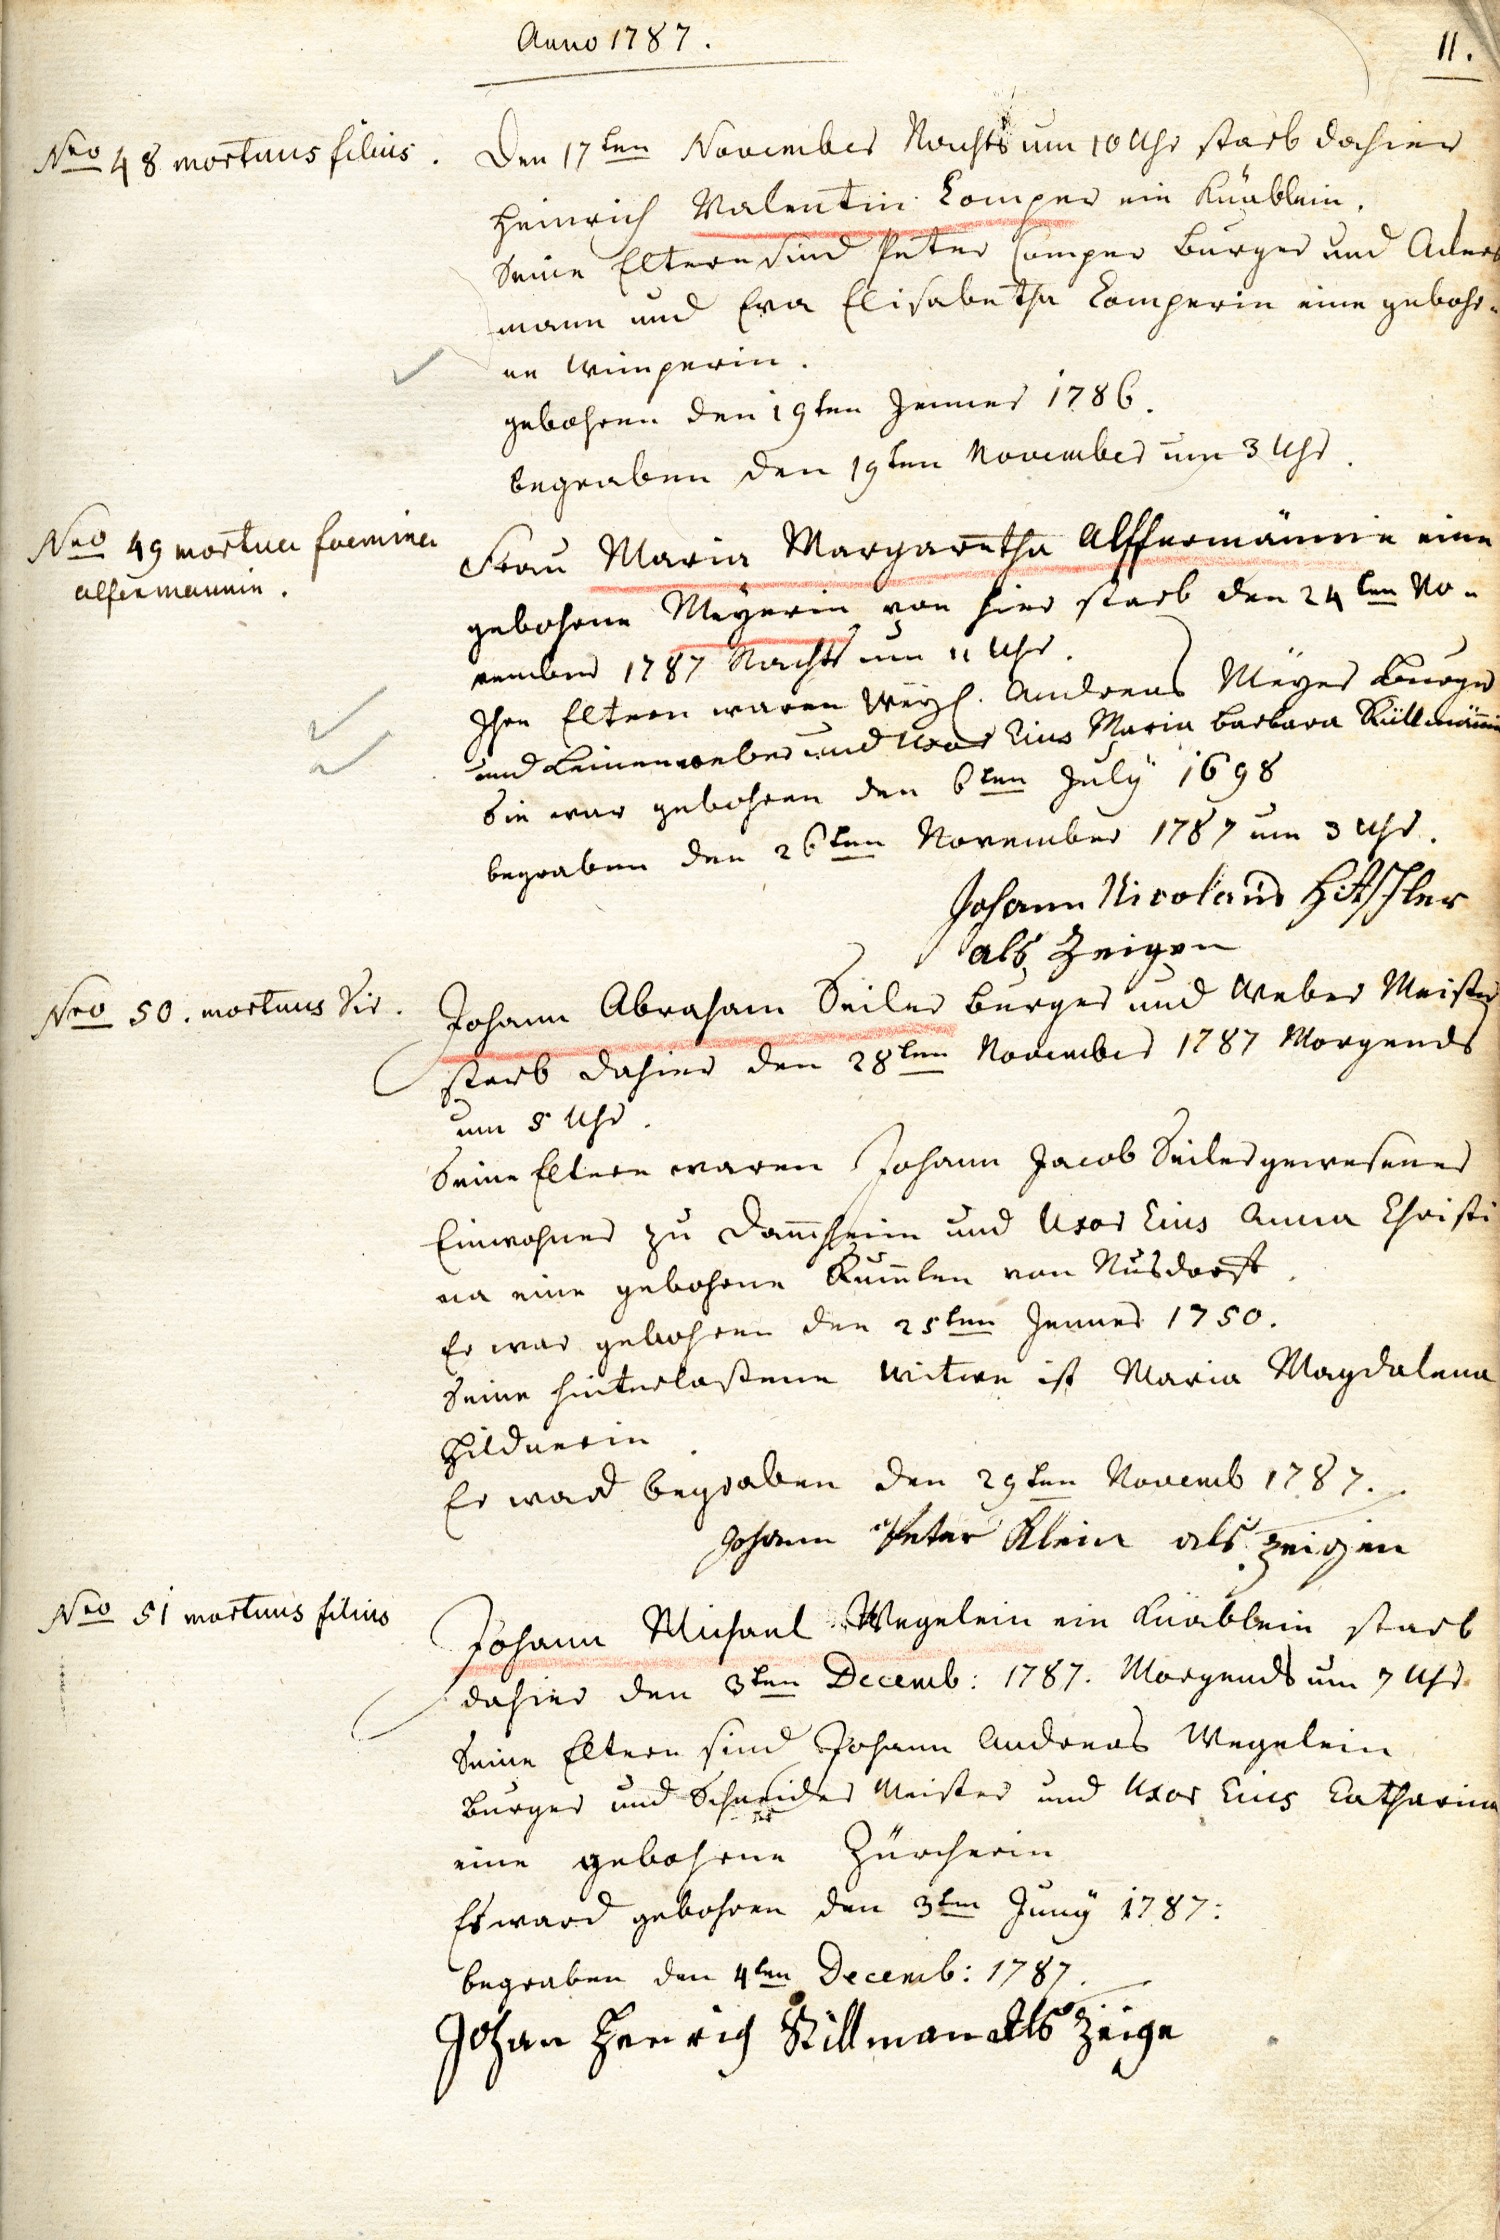 Anno 1787.
11.
Nro 48 mortuus filius.
Den 17ten November Nachts um 10 Uhr starb dahier
Heinrich Valentin Comper ein Knäblein.
Seine Eltern sind Peter Comper Burger und Ackers
mann und Eva Elisabetha Comperin eine gebohr-
ne Wimperin.
gebohren den 19ten Jenner 1786.
begraben den 19ten November um 3 Uhr.
Nro 49 mortua foemina
alfermannin.
Frau Maria Margaretha Alffermännin eine
gebohrne Meÿerin von hier starb den 24ten No-
vember 1787 Nachts um 11 Uhr.
Ihre Eltern waren Weÿl. Andreas Meÿer Burger
und Leinenweber und Uxor Eius Maria Barbara Küllmännin
Sie war gebohren den 6ten Julÿ 1698
begraben den 26ten November 1787 um 3 Uhr.
Johann Nicolaus
als Zeigen
Nro 50. mortuus Vir.
Johann Abraham Seiler Burger und Weber Meister
starb dahier den 28ten November 1787 Morgends
um 5 Uhr.
Seine Eltern waren Johann Jacob Seiler gewesener
Einwohner zu Dam̄heim und Uxor Eius Anna Christi
na eine gebohrne von Nusdorff.
Er war gebohren den 25ten Jenner 1750.
Seine hinterlaßene Witwe ist Maria Magdalena
Hildnerin.
Er ward begraben den 29ten Novemb 1787.
Johann Peter Klein als zeigen
Nro 51 mortuus filius
Johann Michael Wegelein ein Knäblein starb
dahier den 3ten Decemb: 1787. Morgends um 7 Uhr.
Seine Eltern sind Johann Andreas Wegelein
Burger und Schneider Meister und Uxor Eius Catharina
eine gebohrne Zürcherin
Es ward gebohren den 3ten Junÿ 1787:
begraben den 4ten Decemb: 1787.
Johan Henrich Killman als Zeige